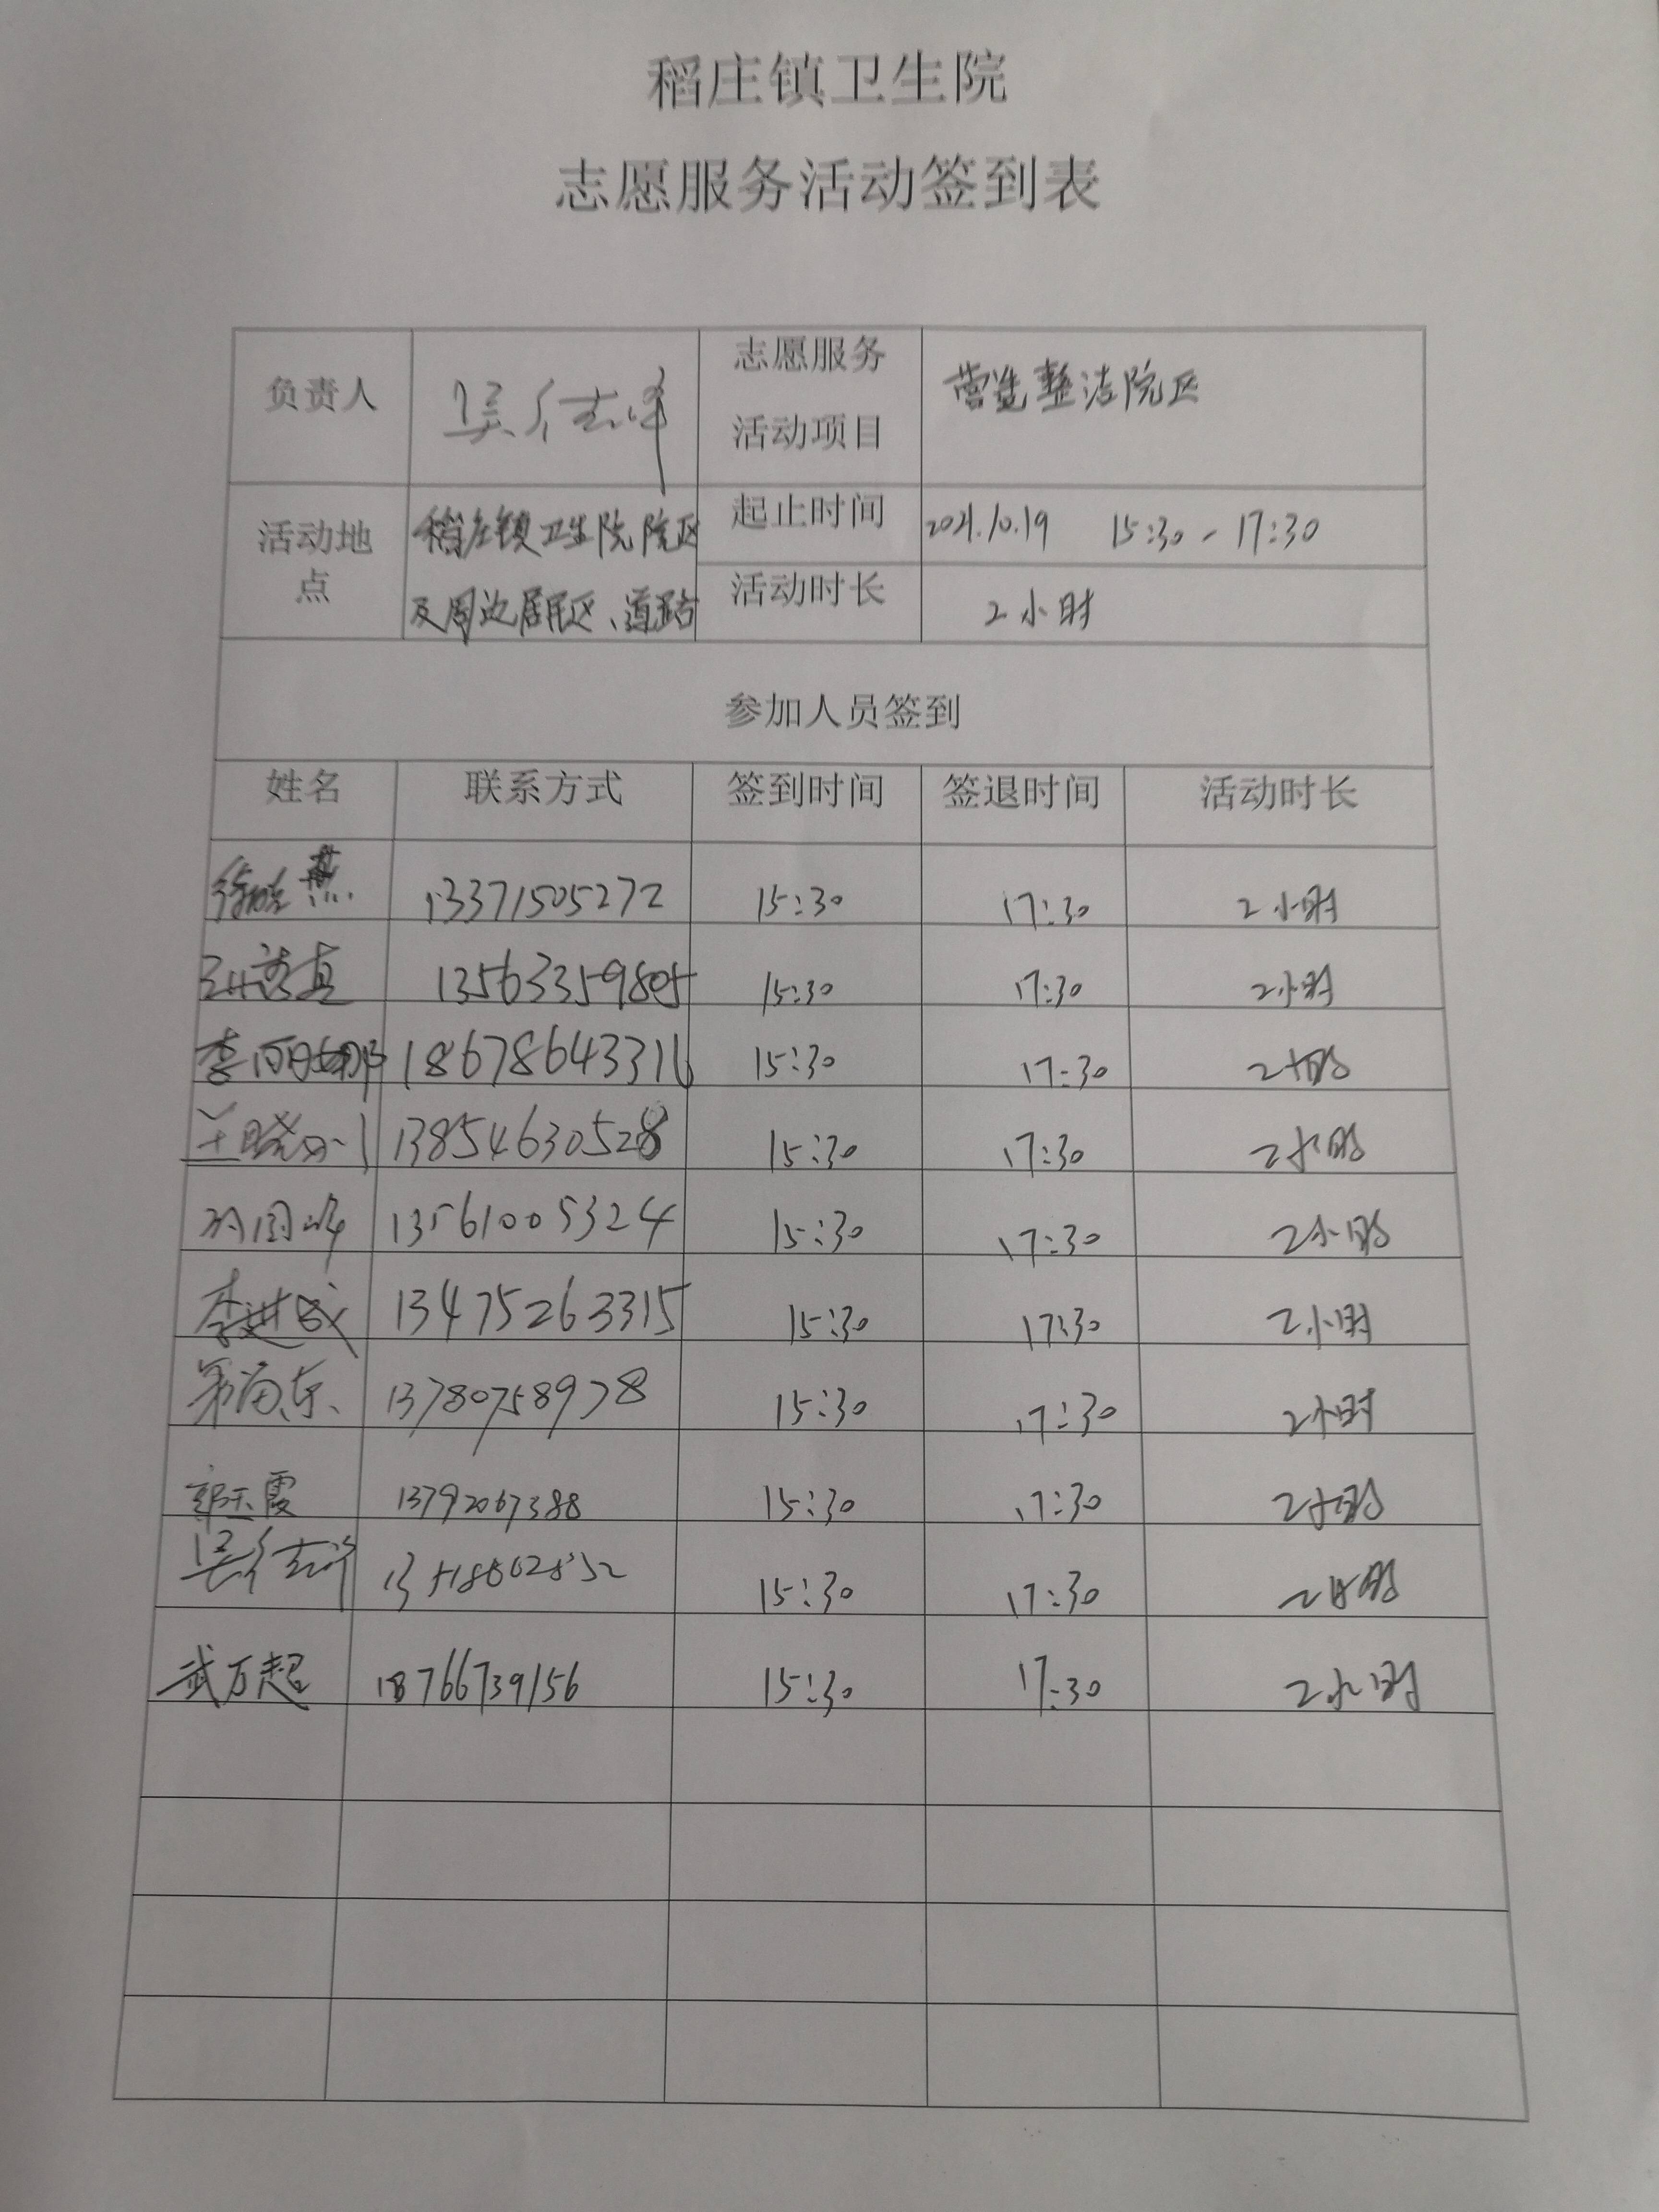 稻庄镇卫生院
志愿服务活动签到表
负责人 志愿服务活动项目 营造整洁院区
活动地点 稻庄镇卫生院院区及周边居民区、道路 起止时间 2021.10.19 15:30-17:30
活动时长 2小时
参加人员签到
姓名 联系方式 签到时间 签退时间 活动时长
徐晓燕 13371505272 15:30 17:30 2小时
13563359805 15:30 17:30 2小时
李丽娜 18678643316 15:30 17:30 2小时
13854630528 15:30 17:30 2小时
13561005324 15:30 17:30 2小时
李进成 13475263315 15:30 17:30 2小时
13780758978 15:30 17:30 2小时
郭玉霞 13792067388 15:30 17:30 2小时
15:30 17:30 2小时
武万超 18766739156 15:30 17:30 2小时